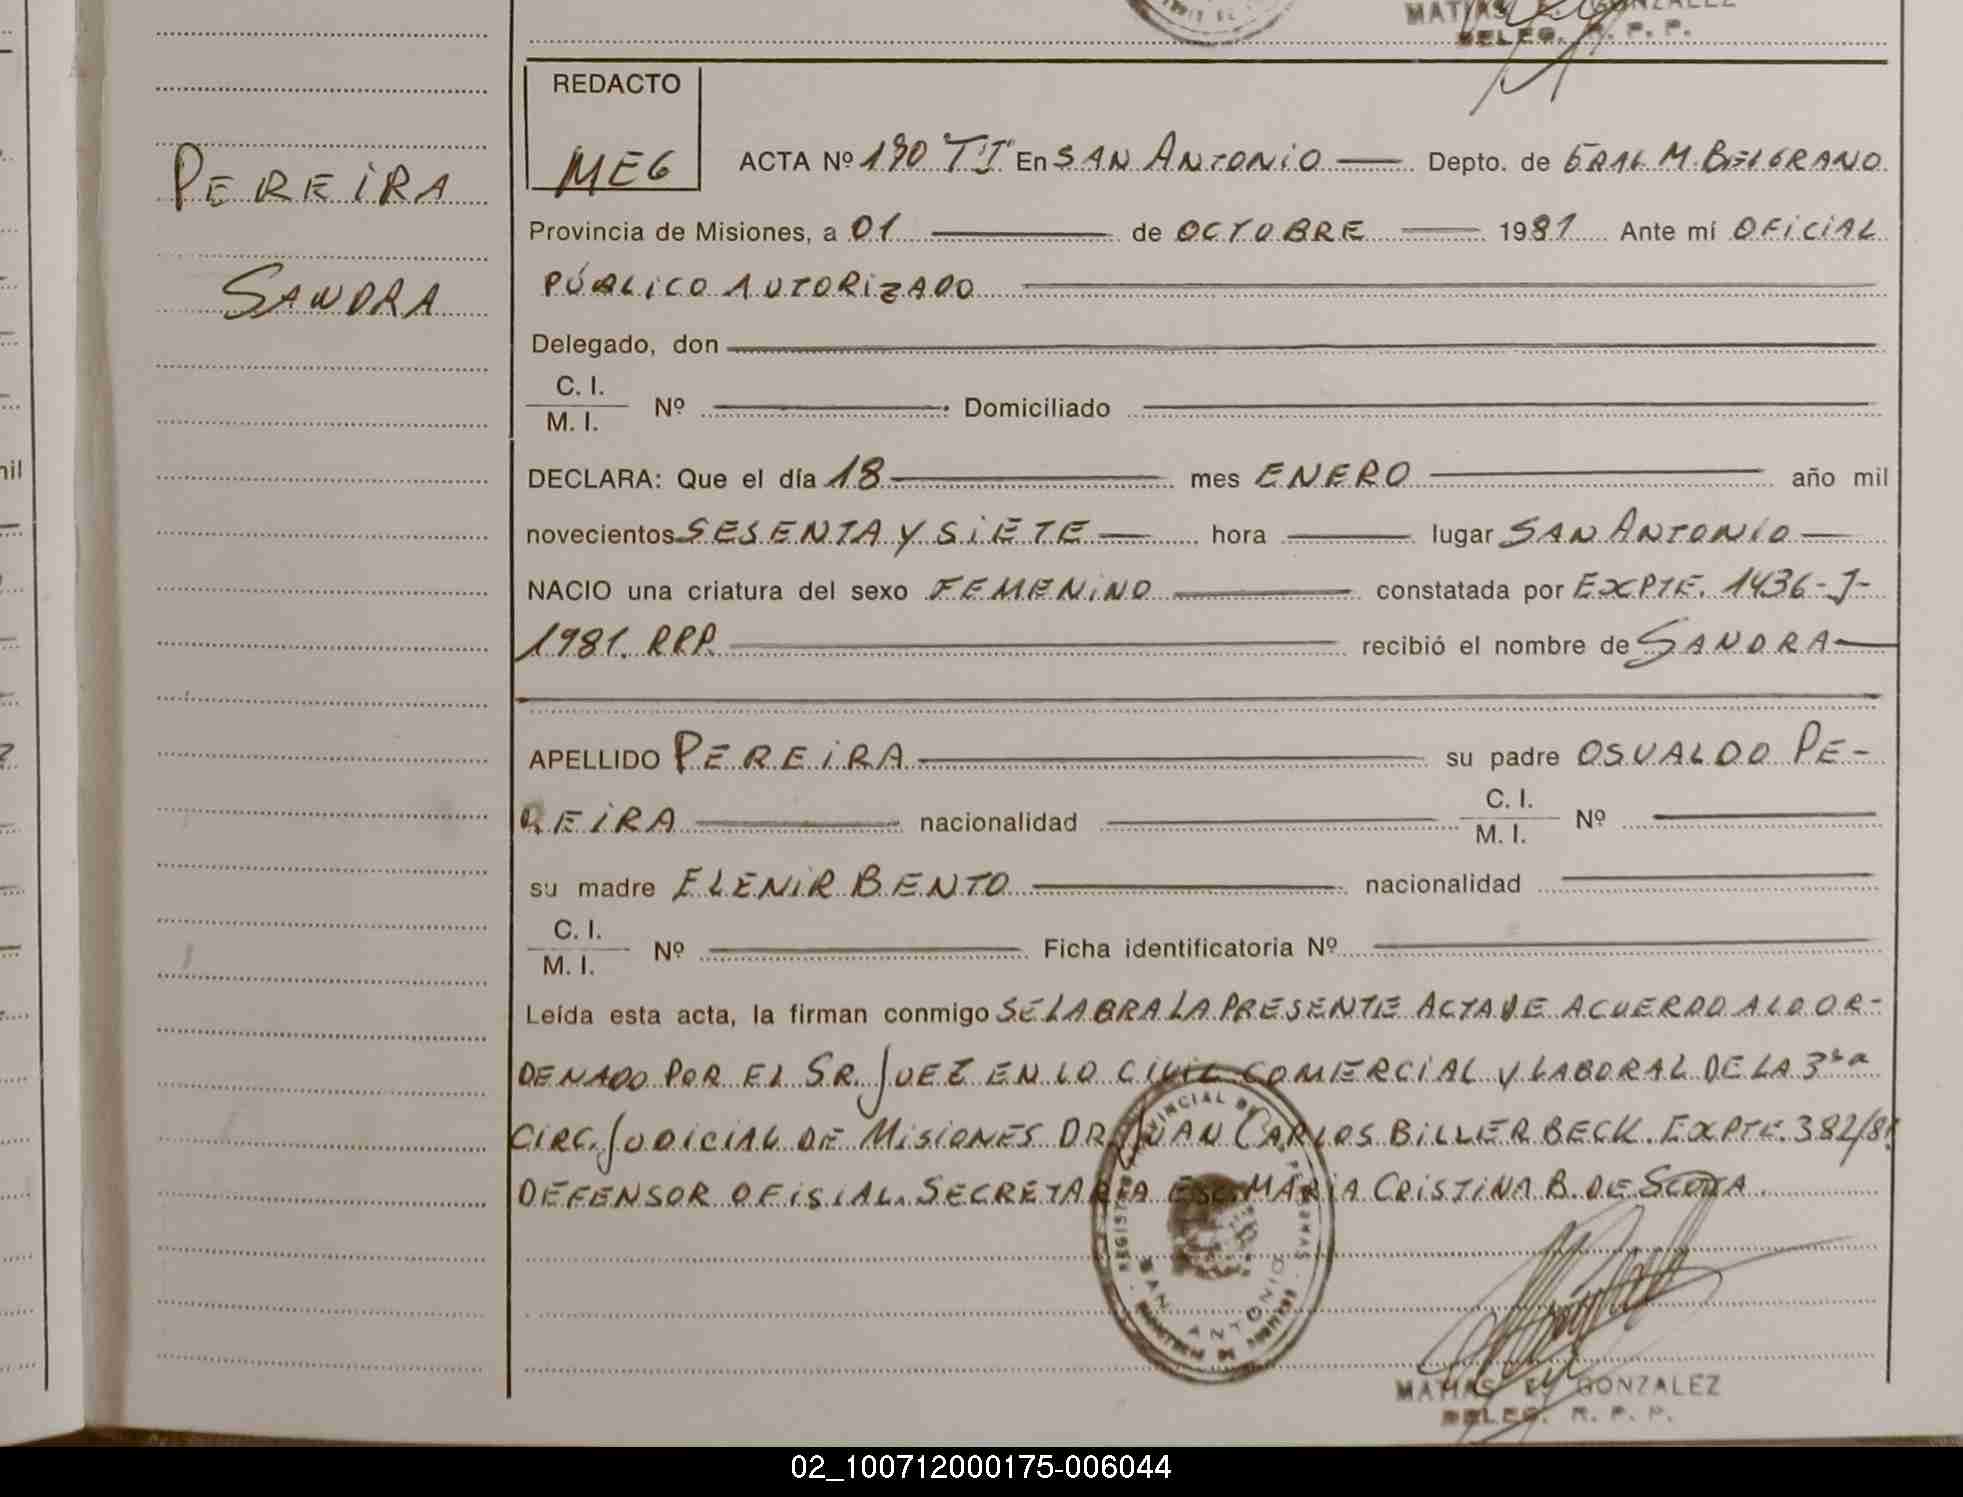 MATIAS E. GONZALEZ
DELEG. R. P. P.
REDACTO
MEG
PEREIRA
SANDRA
ACTA Nº 190 TI En SAN ANTONIO Depto. de GRAL M. BELGRANO
Provincia de Misiones, a 01 de OCTOBRE 1981 Ante mí OFICIAL
PÚBLICO AUTORIZADO
Delegado, don
C. I.
M. I. Nº Domiciliado
DECLARA: Que el día 18 mes ENERO año mil
novecientos SESENTA Y SIETE hora lugar SAN ANTONIO
NACIO una criatura del sexo FEMENINO constatada por EXPTE. 1436-J-
1981. RPP. recibió el nombre de SANDRA
APELLIDO PEREIRA su padre OSVALDO PE-
REIRA nacionalidad C. I.
M. I. Nº
su madre ELENIR BENTO nacionalidad
C. I.
M. I. Nº Ficha identificatoria Nº
Leída esta acta, la firman conmigo SE LABRA LA PRESENTE ACTA DE ACUERDO A LO OR-
DENADO POR EL SR. JUEZ EN LO CIVIL COMERCIAL Y LABORAL DE LA 3ra
CIRC. JUDICIAL DE MISIONES DR. JUAN CARLOS BILLERBECK. EXPTE. 382/81
DEFENSOR OFISIAL. SECRETARIA ESC. MARIA CRISTINA B. DE
SAN ANTONIO
MATIAS E. GONZALEZ
DELEG. R. P. P.
02_100712000175-006044